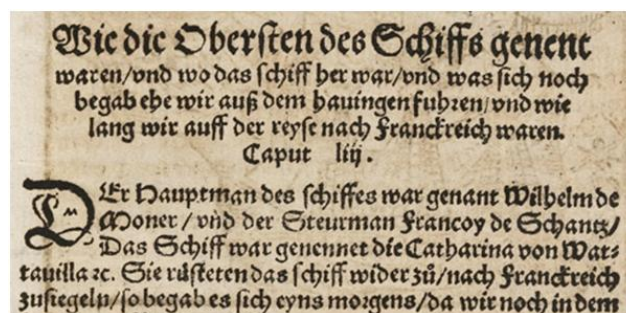 Wie die Obersten des Schiffs genent
waren/vnd wo das schiff her war/vnd was sich noch
begab ehe wir auß dem hauingen fuhren/vnd wie
lang wir auff der reyse nach Franckreich waren.
Caput liij.
DEr Hauptman des schiffes war genant Wilhelm de
Moner / vnd der Steurman Francoy de Schantz/
Das Schiff war genennet die Catharina von Wat⸗
tauilla ꝛc. Sie rüsteten das schiff wider zů/nach Franckreich
zusiegeln/so begab es sich eyns morgens/da wir noch in dem